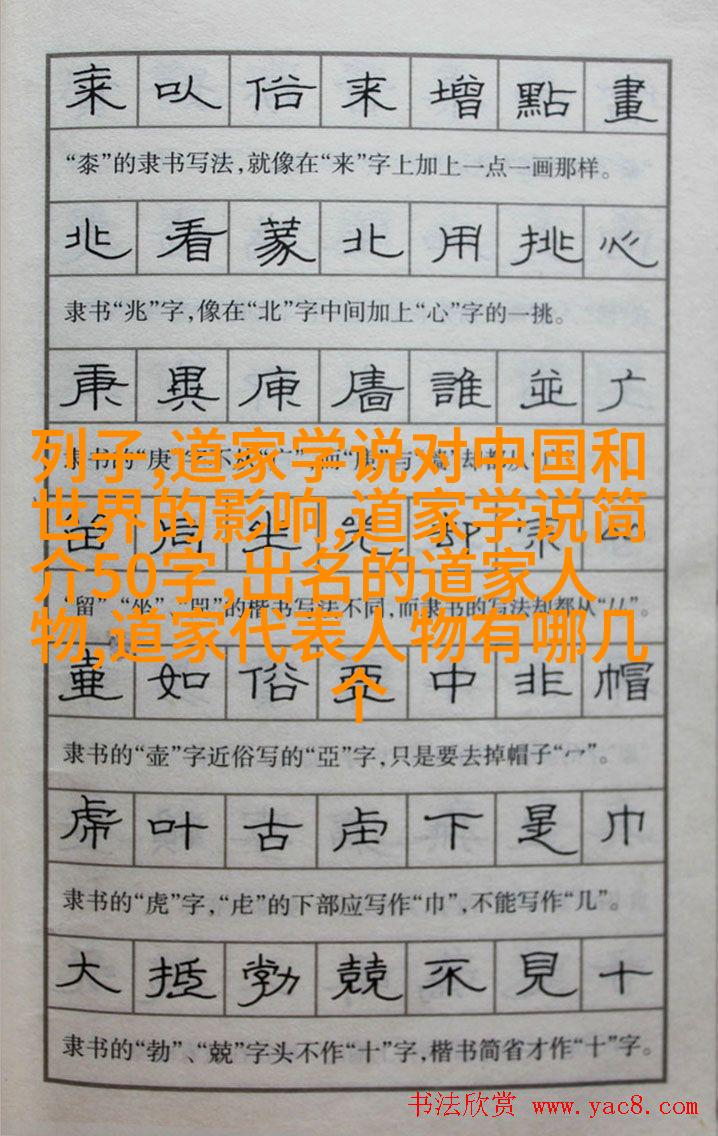 桼以俗来增點畫
“桼”的隶书写法,就像在“来”字上加上一点一画那样。
兆看篆北用挑心
隶书“兆”字,像在“北”字中间加上“心”字的一挑。
庚異廧誰並广
列子,道家学说对中国和
世界的影响,道家学说简
介50字,出名的道家人
物,道家代表人物有哪几
个
“留”、“坐”的楷书写法不同,而隶书的写法却都从“㕕”。
壷如俗亞中非帽
隶书的“壶”字近俗写的“亞”字,只是要去掉帽子“宀”。
虎叶古虍下是巾
隶书的“虎”字,“虍”的下部应写作“巾”,不能写作“几”。
大抵勃兢不見十
隶书的“勃”、“兢”字头不作“十”字,楷书简省才作“十”字。
书法欣赏 www.yac8.com